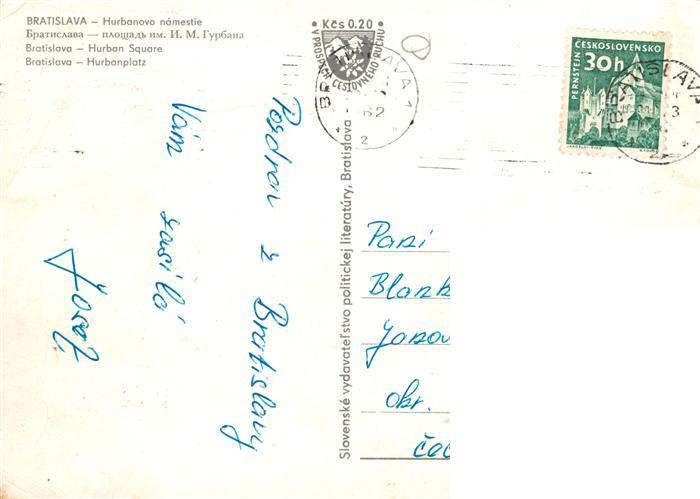 BRATISLAVA – Hurbanovo námestie
Братислава — площадъ им. И. М. Гурбана
Bratislava – Hurban Square
Bratislava – Hurbanplatz
Kčs 0.20
V PROSPECH CESTOVNÉHO RUCHU
BRATISLAVA 1
62
2
ČESKOSLOVENSKO
30h
PERNŠTEJN
BRATISLAVA
Pozdrav z Bratislavy
Vám zasílá
Josef
Slovenské vydavateľstvo politickej literatúry, Bratislava
Paní
Blank
Janov
okr.